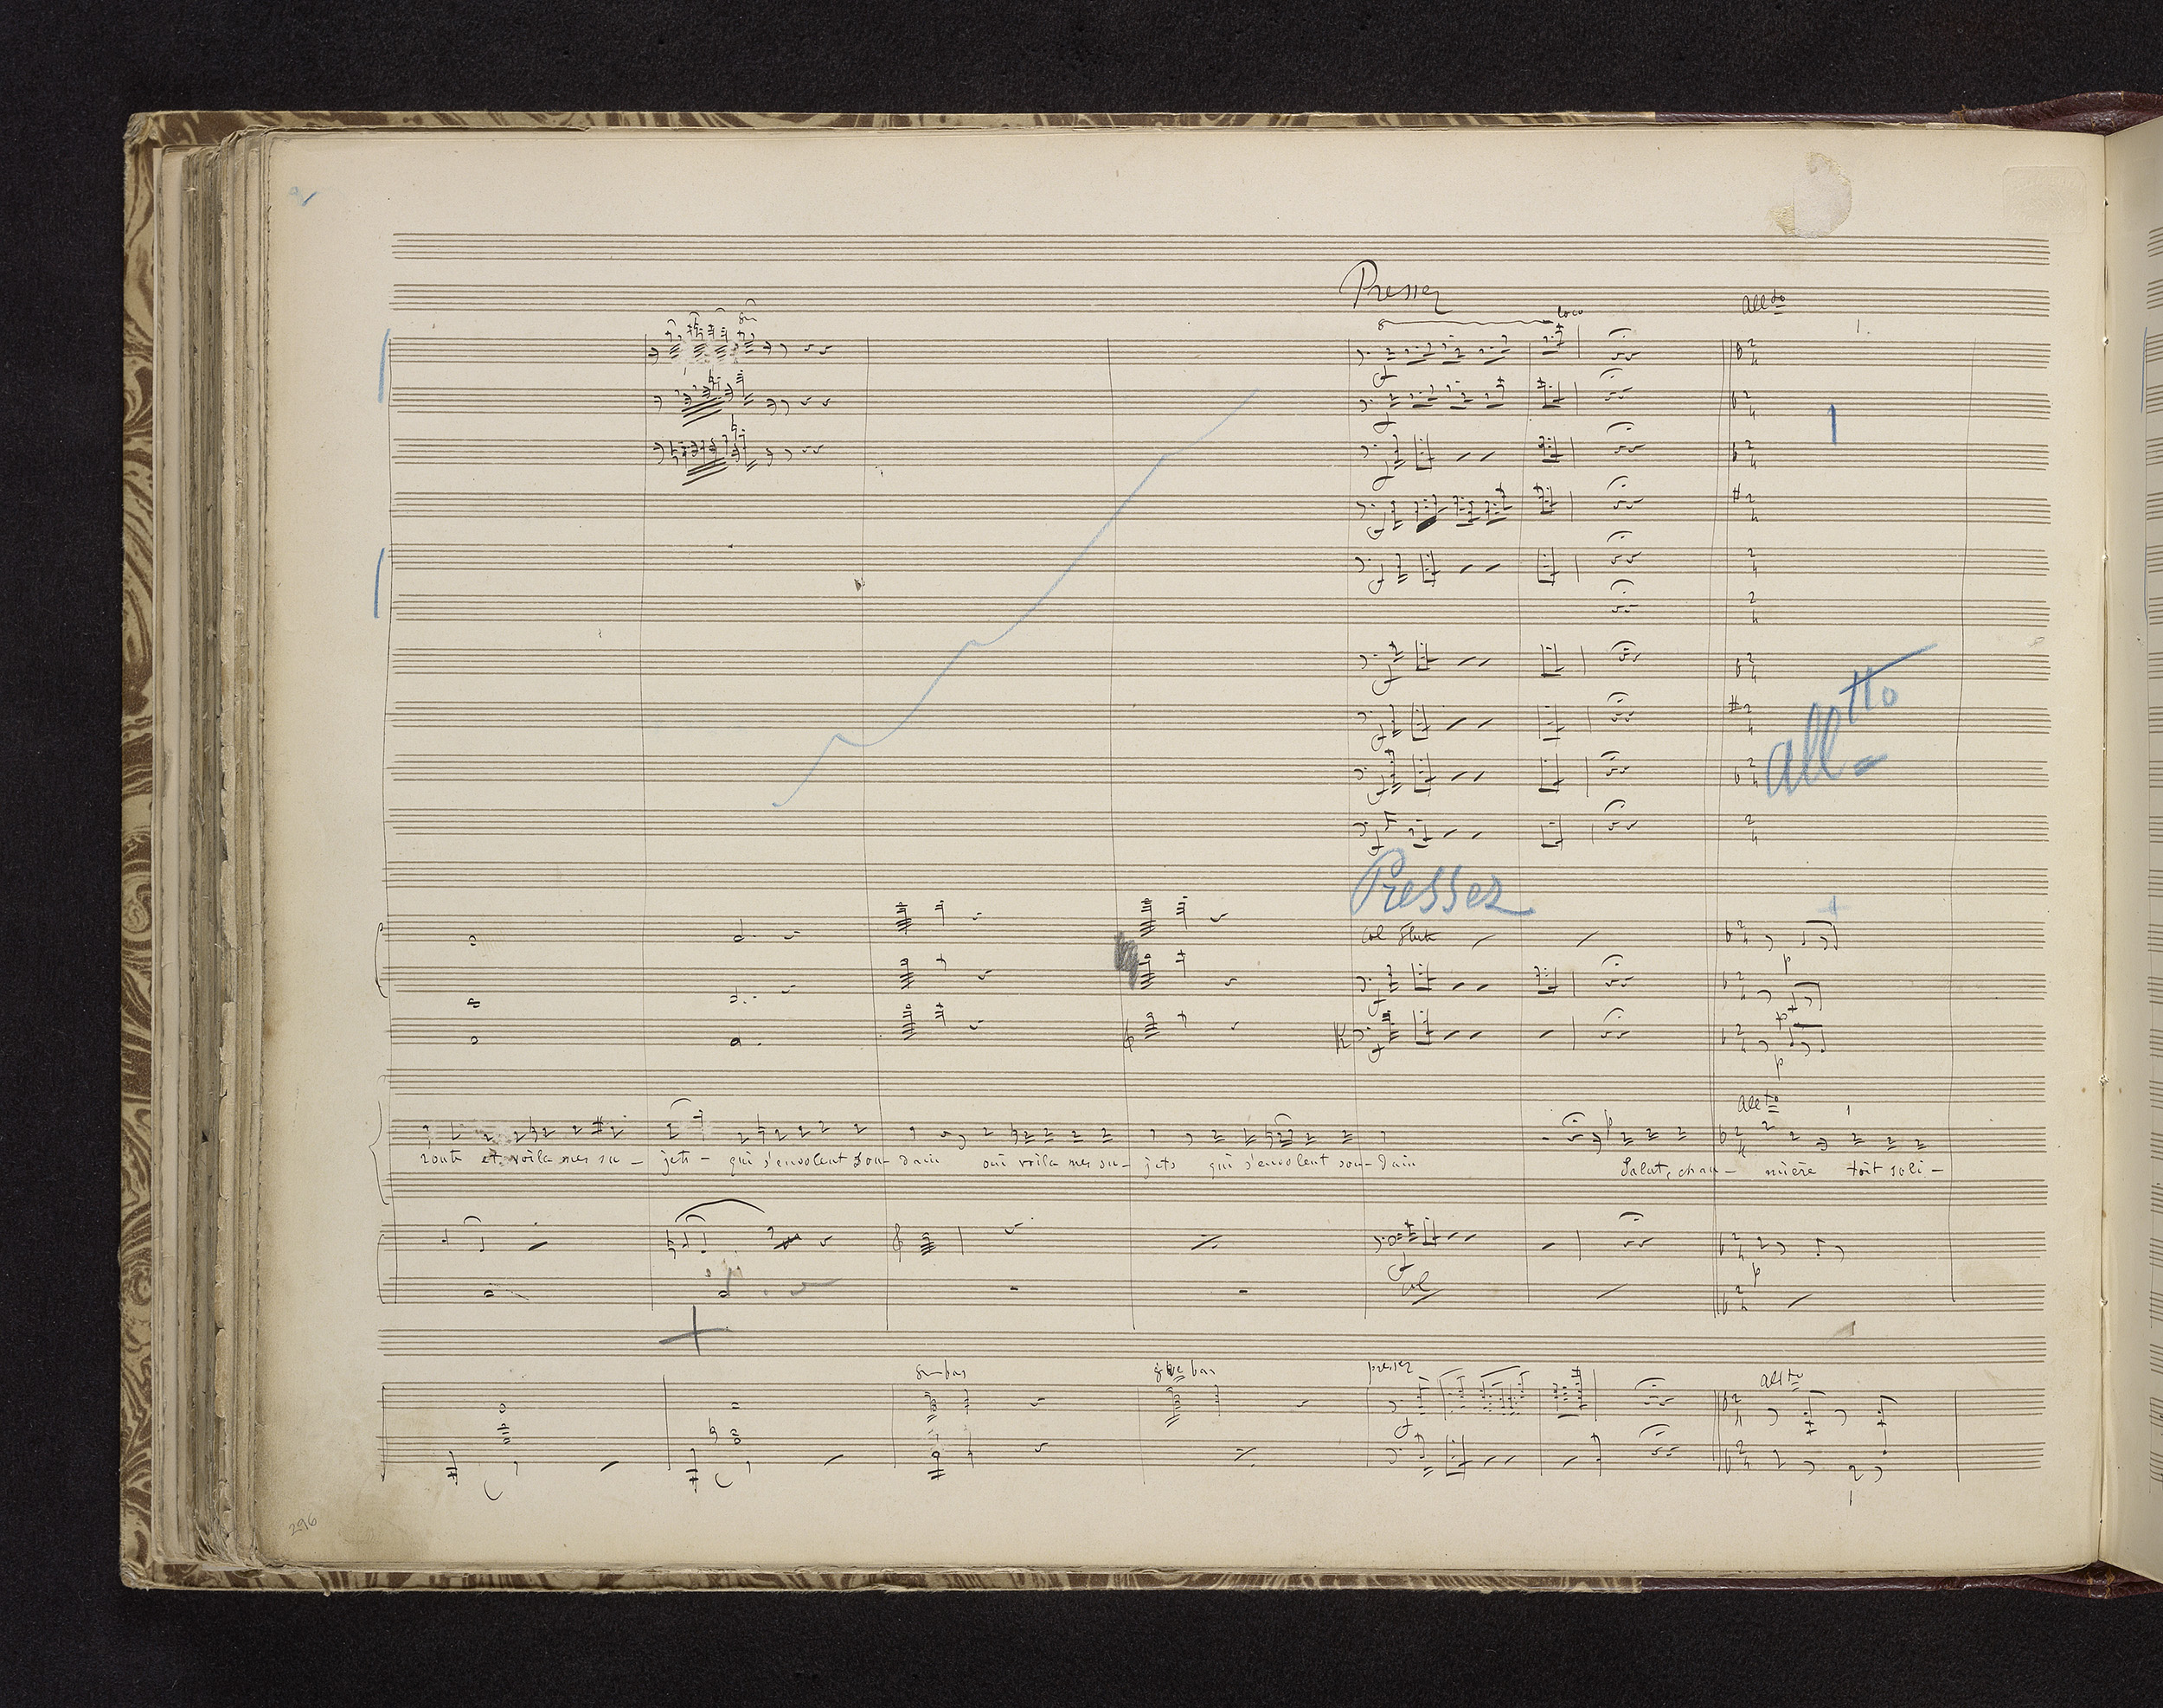 Pressez
8
loco
All tto
1.
all tto
Pressez
Col flute
p
p
p
All tto
route et voila mes su - jets - qui s'envolent sou - dain oui voila mes su - jets qui s'envolent sou - dain Salut, chau - mière toit soli -
p
Col
8 bas
8ve bas
pressez
all tto
296